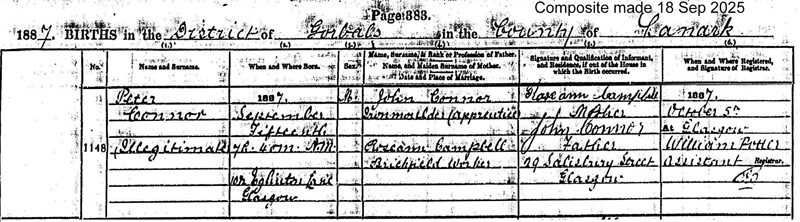 Composite made 18 Sep 2025
Page 383.
1887. BIRTHS in the District of Gorbals in the County of Lanark
(1.) (2.) (3.) (4.) (5.) (6.)
No. Name and Surname. When and Where Born. Sex. Name, Surname, & Rank or Profession of Father. Name, and Maiden Surname of Mother. Date and Place of Marriage. Signature and Qualification of Informant, and Residence, if out of the House in which the Birth occurred. When and Where Registered, and Signature of Registrar.
Peter 1887. M. John Connor Roseann Campbell 1887.
Connor September Ironmoulder (apprentice) Mother October 5th
Fifteenth John Connor At Glasgow
1148 (Illegitimate) 7h. 40m. AM Roseann Campbell Father William Potter
29 Salisbury Street Assistant Registrar.
Eglinton Lane Glasgow
Glasgow